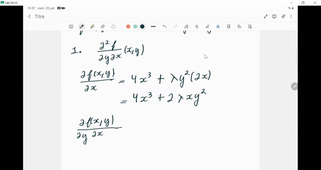 Titre
1. ∂²f/∂y∂x (x,y)
∂f(x,y)/∂x = 4x³ + λy²(2x)
= 4x³ + 2λxy²
∂f(x,y)/∂y ∂x